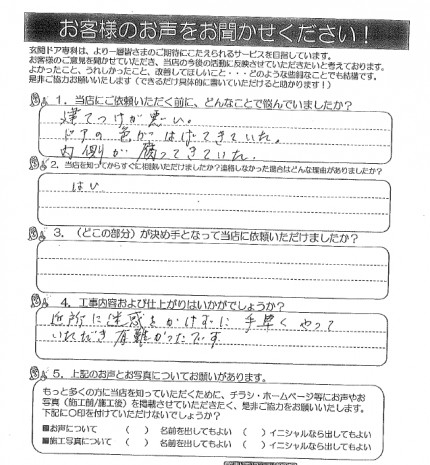 お客様のお声をお聞かせください！
玄関ドア専科は、より一層皆さまのご期待にこたえられるサービスを目指しています。
お客様のご意見を聞かせていただき、当店の今後の活動に反映させていただきたいと考えております。
よかったこと、うれしかったこと、改善してほしいこと・・・どのような些細なことでも結構です。
是非ご協力お願いいたします（できるだけ具体的に書いていただけると助かります！）
1．当店にご依頼いただく前に、どんなことで悩んでいましたか？
建てつけが悪い。
ドアの色がはげてきていた。
内側が腐ってきていた。
2．当店を知ってからすぐに相談いただけましたか？連絡しなかった場合はどんな理由がありましたか？
はい
3．（どこの部分）が決め手となって当店に依頼いただけましたか？
4．工事内容および仕上がりはいかがでしょうか？
近所に迷惑をかけずに手早くやって
いただき有難かったです
5．上記のお声とお写真についてお願いがあります。
もっと多くの方に当店を知っていただくために、チラシ・ホームページ等にお声やお
写真（施工前/施工後）を掲載させていただきたく、是非ご協力をお願いいたします。
下記に〇印を付けていただけないでしょうか？
■お声について （ ）名前を出してもよい （ ）イニシャルなら出してもよい
■施工写真について （ ）名前を出してもよい （ ）イニシャルなら出してもよい